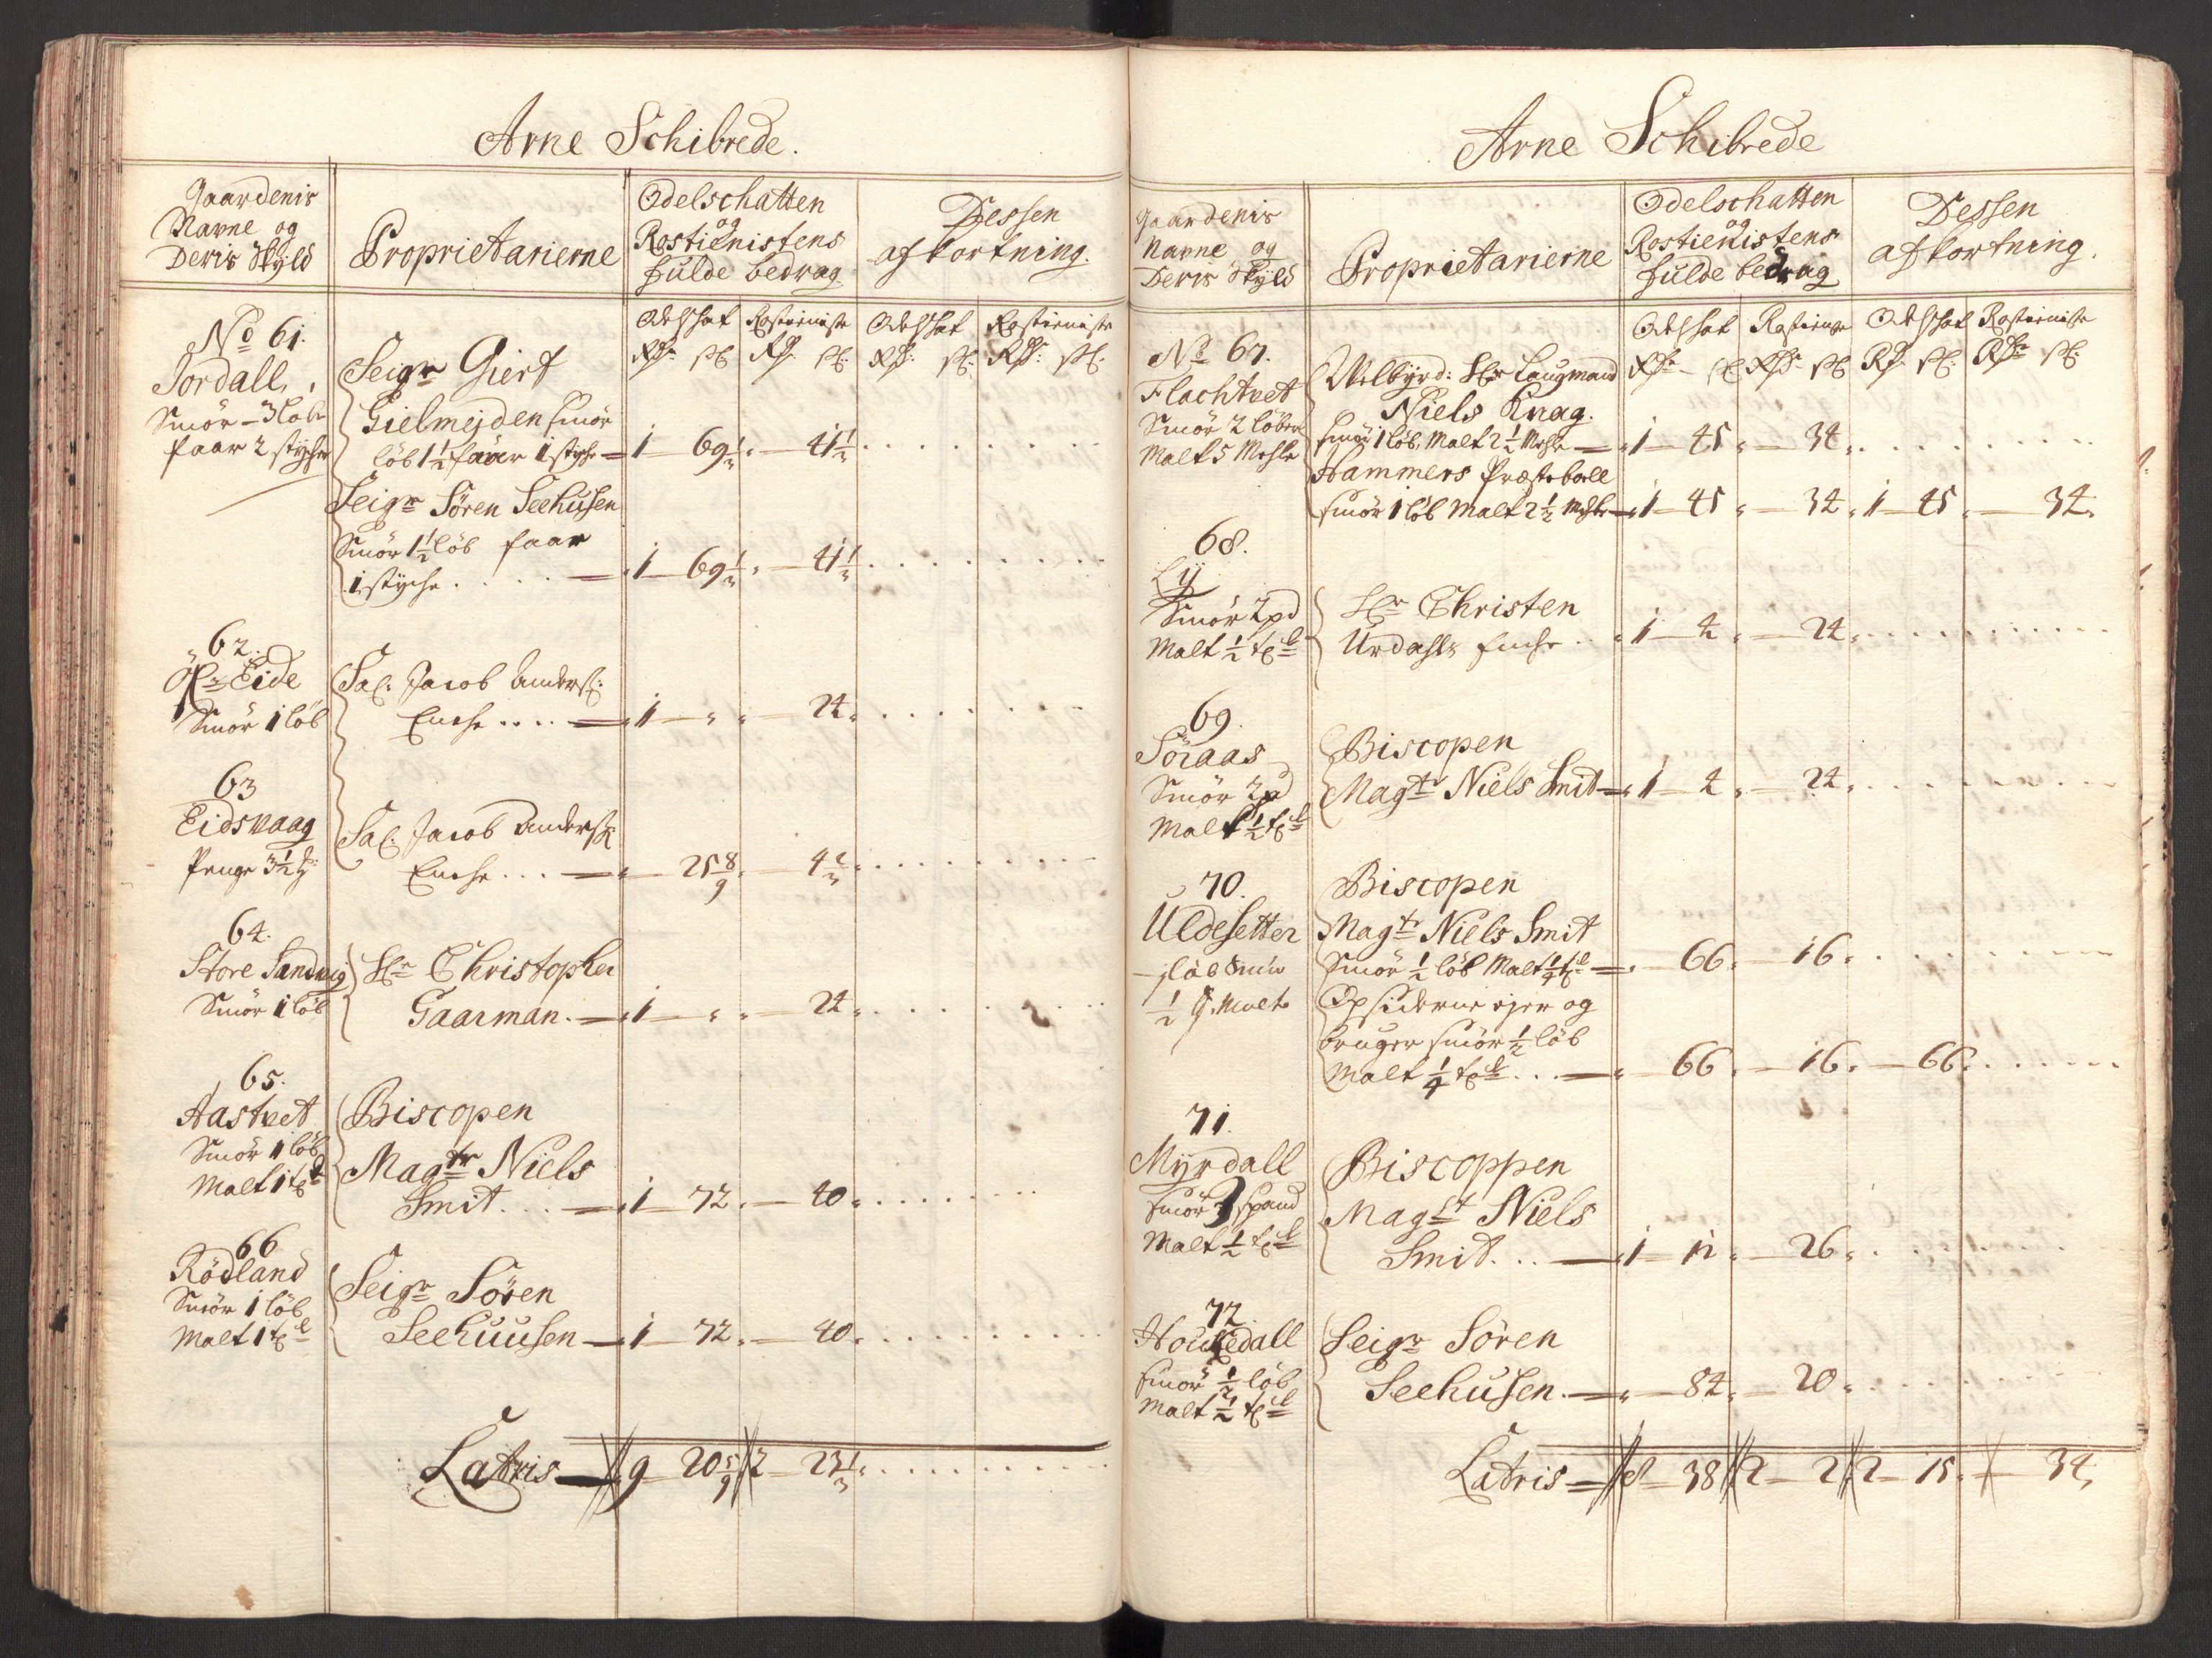 Arne Schibrede.
Gaardenis
Navne og
Deris Skyld
Proprietarierne
Odelschatten
og
Rostienistens
fulde bedrag
Dessen
afkortning.
Odelschat Rostieniste Odelschat Rostieniste
Rdr: s: Rdr: s: Rdr: s: Rdr: s:
No 61.
Jordall.
Smör - 3 löb
faar 2 stycher
Seigr Giert
Gielmejden smör
löb 1½ faar 1 stche 1 69½ 41½
Seigr Sören Seehusen
Smör 1½ löb faar
1 styche. 1 69½ 41½
62.
Eide
Smör 1 löb
Sal: Jacob Anders:
Enche .... 1 " 24
63
Eidsvaag
Penge 3½ s:
Sal. Jacob Anders:
Enche ... 25 8/9 4 2/3
64.
Store Sandvig
Smör 1 löb
Hr Christopher
Gaarman. 1 " 24
65.
Aastvet
Smör 1 löb
Malt 1 td
Biscopen
Magtr Niels
Smit. 1 72 40
66
Rödland
Smör 1 löb
Malt 1 td
Seigr Sören
Seehuusen 1 72 40
Latris 9 20 5/9 2 23 1/3
Arne Schibrede
Gaardenis
Navne og
Deris Skyld
Proprietarierne
Odelschatten
og
Rostienistens
fulde bedrag
Dessen
afkortning.
Odelschat Rostieniste Odelschat Rostieniste
Rdr s Rdr s Rdr s: Rdr s:
No 67.
Flachtvet
Smör 2 löber
Malt 5 Mehler
Welbyrd: Hr Laugmand
Niels Knag.
smör 1 löb, Malt 2½ Mehle 1 45 34
Hammers Præstebolle
smör 1 löb Malt 2½ Mehler 1 45 34 1 45 34
68.
Ly
Smör 2 pd
Malt ½ td
Hr Christen
Urdahls Enche .. 1 4 24
69.
Söraas
Smör 2 pd
Malt ½ td
Biscopen
Magtr Niels Smit 1 4 24
70.
Uldesetter
1 löb Smör
½ t. Malt
Biscopen
Magtr Niels Smit
Smör ½ löb Malt ¼ td 66 16
Opsidderne ejer og
bruger smör ½ löb
Malt ¼ td ... 66 16 66
71.
Myrdall
smör 3 spand
Malt ½ td
Biscoppen
Magst Niels
Smit. .. 1 12 26
72
Houkedall
smör ½ löb
Malt ½ td
Seigr Sören
Seehusen. 84 20
Latris 8 38 2 2 2 15 34